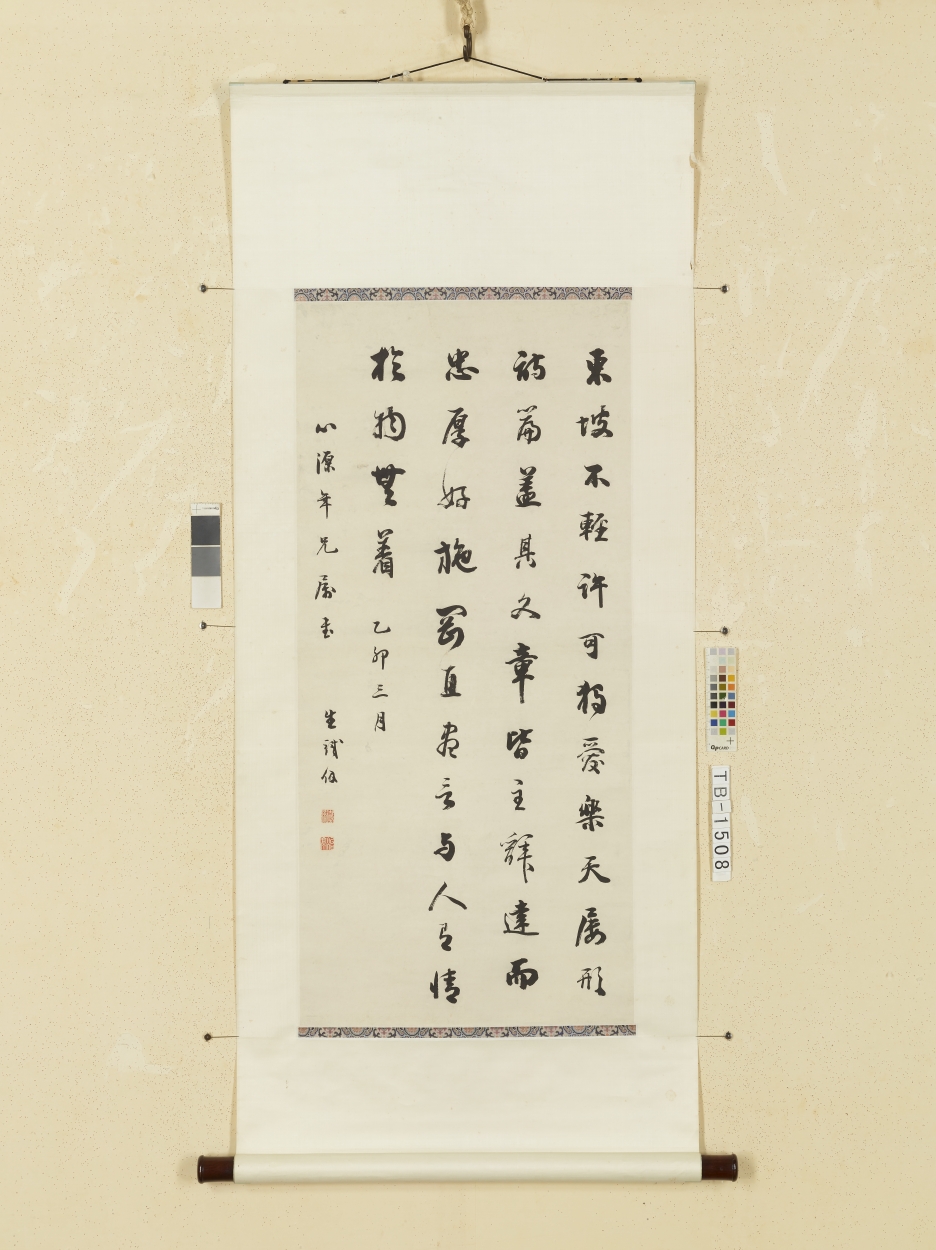 東坡不輕許可獨愛樂天屢形
詩篇蓋其文章皆主辭達而
忠厚好施剛直盡言与人有情
於物無着 乙卯三月
心源年兄属書
TB-1508